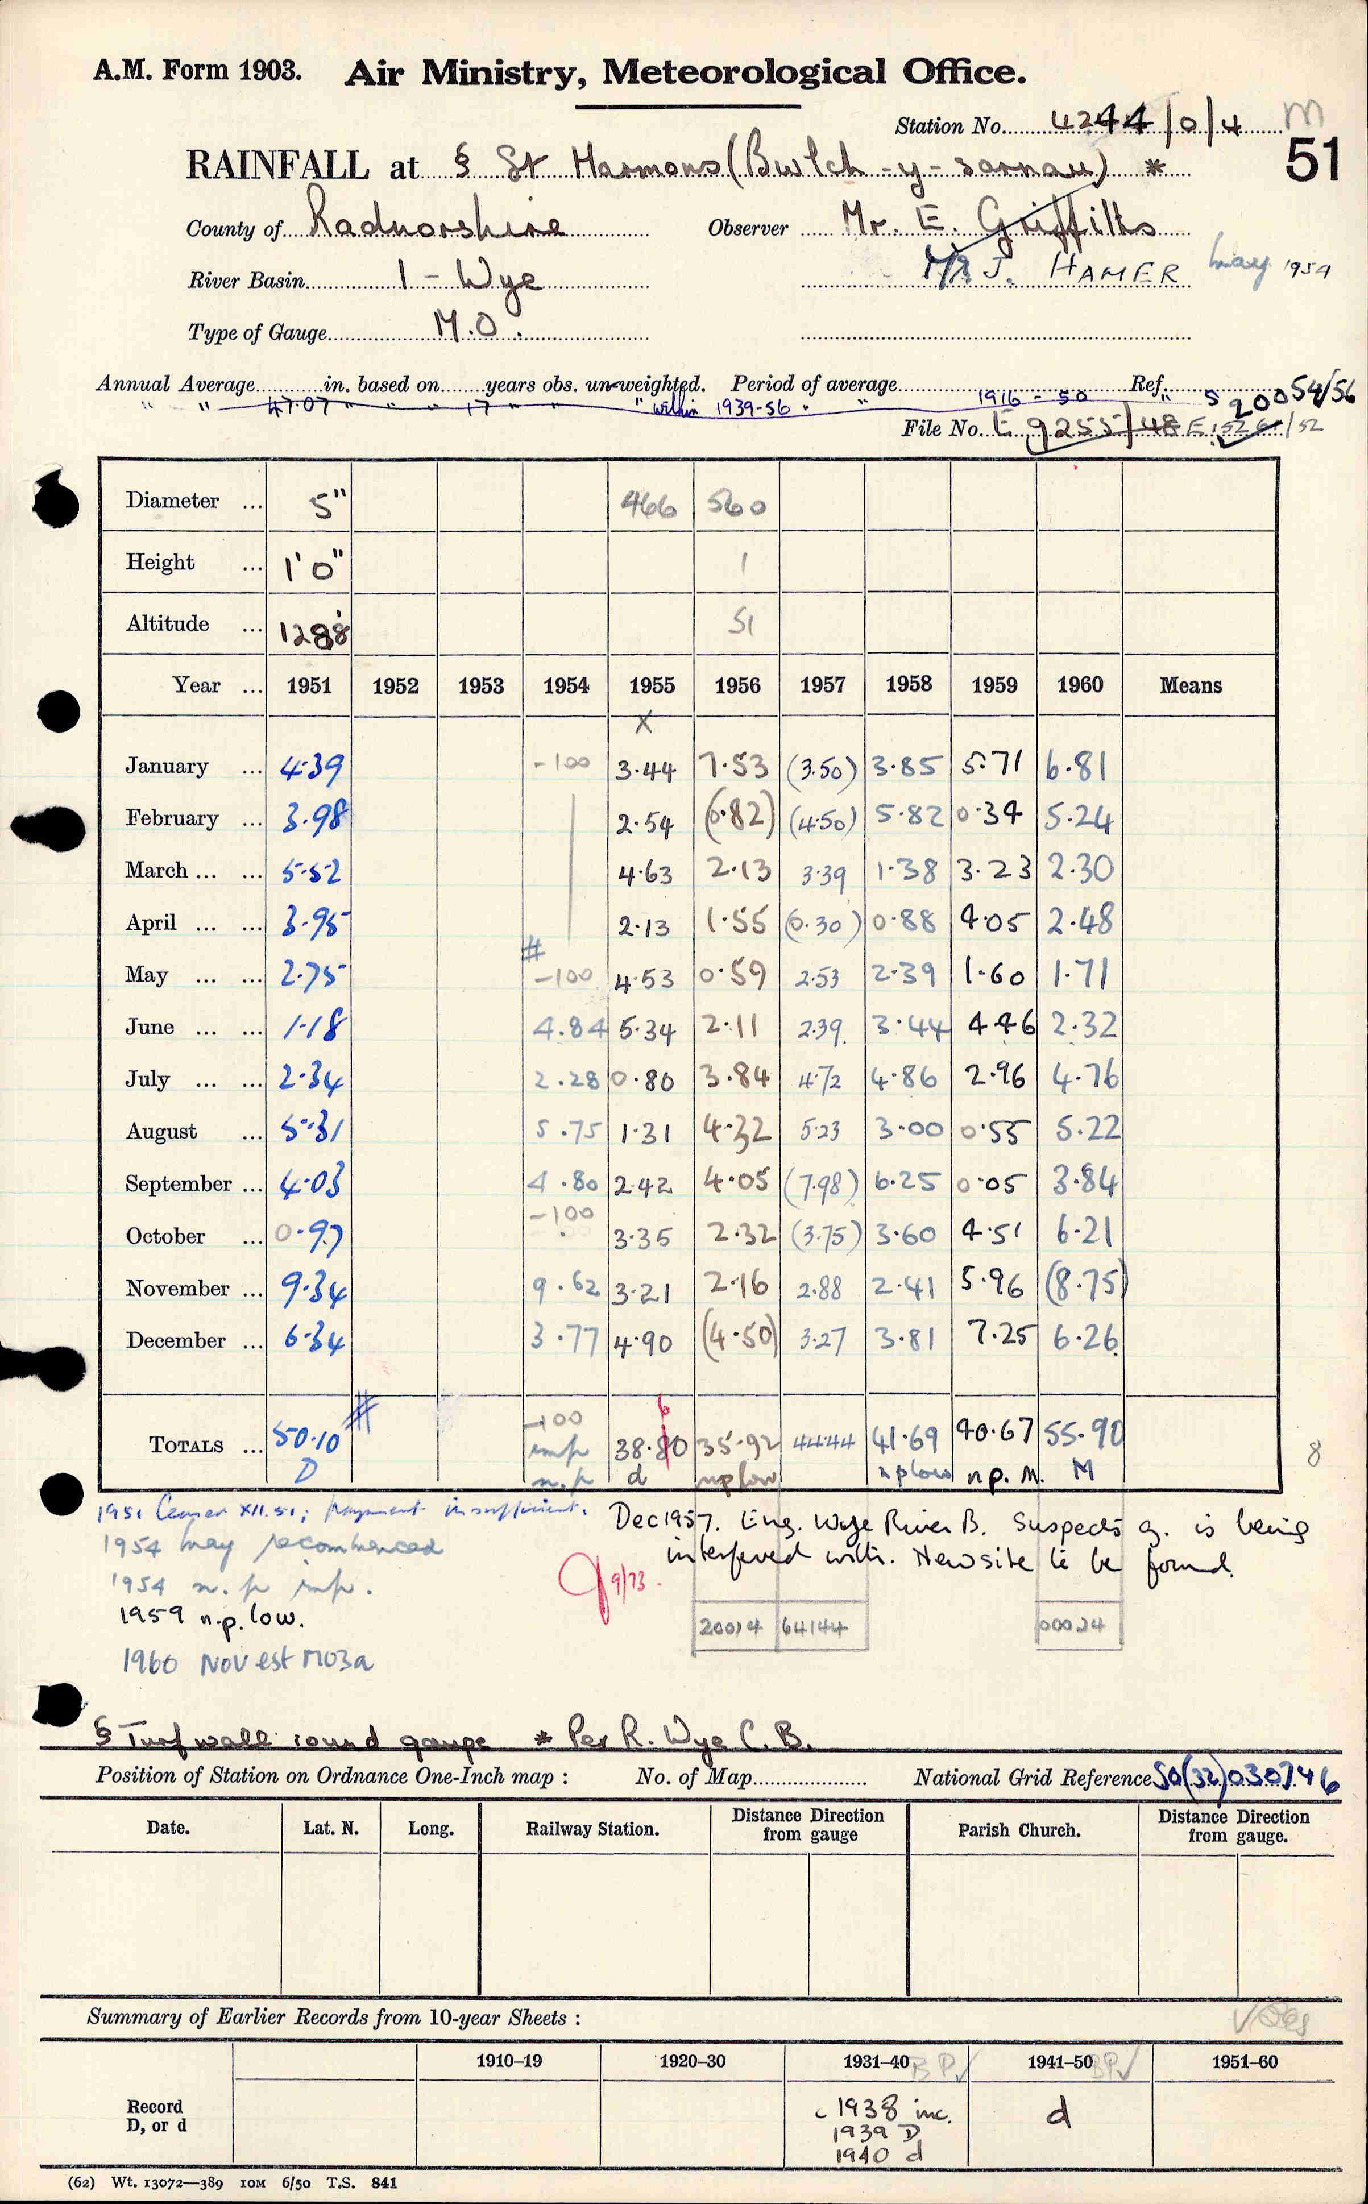 A.M. Form 1903. Air Ministry, Meteorological Office.
Station No. 4244/0/4 M
51
RAINFALL at § St Harmons (Bwlch-y-sarnau) *
County of Radnorshire Observer Mr. E. Griffiths
Mr J. HAMER May 1954
River Basin 1 - Wye
Type of Gauge M.O.
Annual Average in. based on years obs. unweighted. Period of average Ref.
" " 47.07 " " " 17 " " " within 1939-56. " 1916-50 " S 20054/56
File No. E 9255/48 E 15261/52
Diameter ... 5" 466 560
Height ... 1'0" 1
Altitude ... 1288' 51
Year ... 1951 1952 1953 1954 1955 1956 1957 1958 1959 1960 Means
X
January ... 4.39 -100 3.44 7.53 (3.50) 3.85 5.71 6.81
February ... 3.98 2.54 (0.82) (4.50) 5.82 0.34 5.24
March ... ... 5.52 4.63 2.13 3.39 1.38 3.23 2.30
April ... ... 3.95 2.13 1.55 (0.30) 0.88 4.05 2.48
May ... ... 2.75 # -100 4.53 0.59 2.53 2.39 1.60 1.71
June ... ... 1.18 4.84 5.34 2.11 2.39 3.44 4.46 2.32
July ... ... 2.34 2.28 0.80 3.84 4.72 4.86 2.96 4.76
August ... 5.31 5.75 1.31 4.32 5.23 3.00 0.55 5.22
September ... 4.03 4.80 2.42 4.05 (7.98) 6.25 0.05 3.84
October ... 0.97 -100 3.35 2.32 (3.75) 3.60 4.51 6.21
November ... 9.34 9.62 3.21 2.16 2.88 2.41 5.96 (8.75)
December ... 6.34 3.77 4.90 (4.50) 3.27 3.81 7.25 6.26
TOTALS ... 50.10 # -100 38.80 6 35.92 44.44 41.69 40.67 55.90
D imp n.p d np low np low n.p. M. M
8
1951 Ceased XII.51; payment insufficient.
1954 May recommenced
1954 n.p imp.
1959 n.p. low.
1960 Nov est M03a
Dec 1957. Eng. Wye River B. suspects g. is being
interfered with. New site to be found.
9/73.
20014 64144 00024
§ Turf wall round gauge * Per R. Wye C.B.
Position of Station on Ordnance One-Inch map : No. of Map National Grid Reference SO(32)030746
Date. Lat. N. Long. Railway Station. Distance Direction from gauge Parish Church. Distance Direction from gauge.
Summary of Earlier Records from 10-year Sheets :
1910-19 1920-30 1931-40 BP✓ 1941-50 BP✓ 1951-60
Record
D, or d
1938 inc.
1939 D
1940 d
d
(62) Wt. 13072—389 10M 6/50 T.S. 841